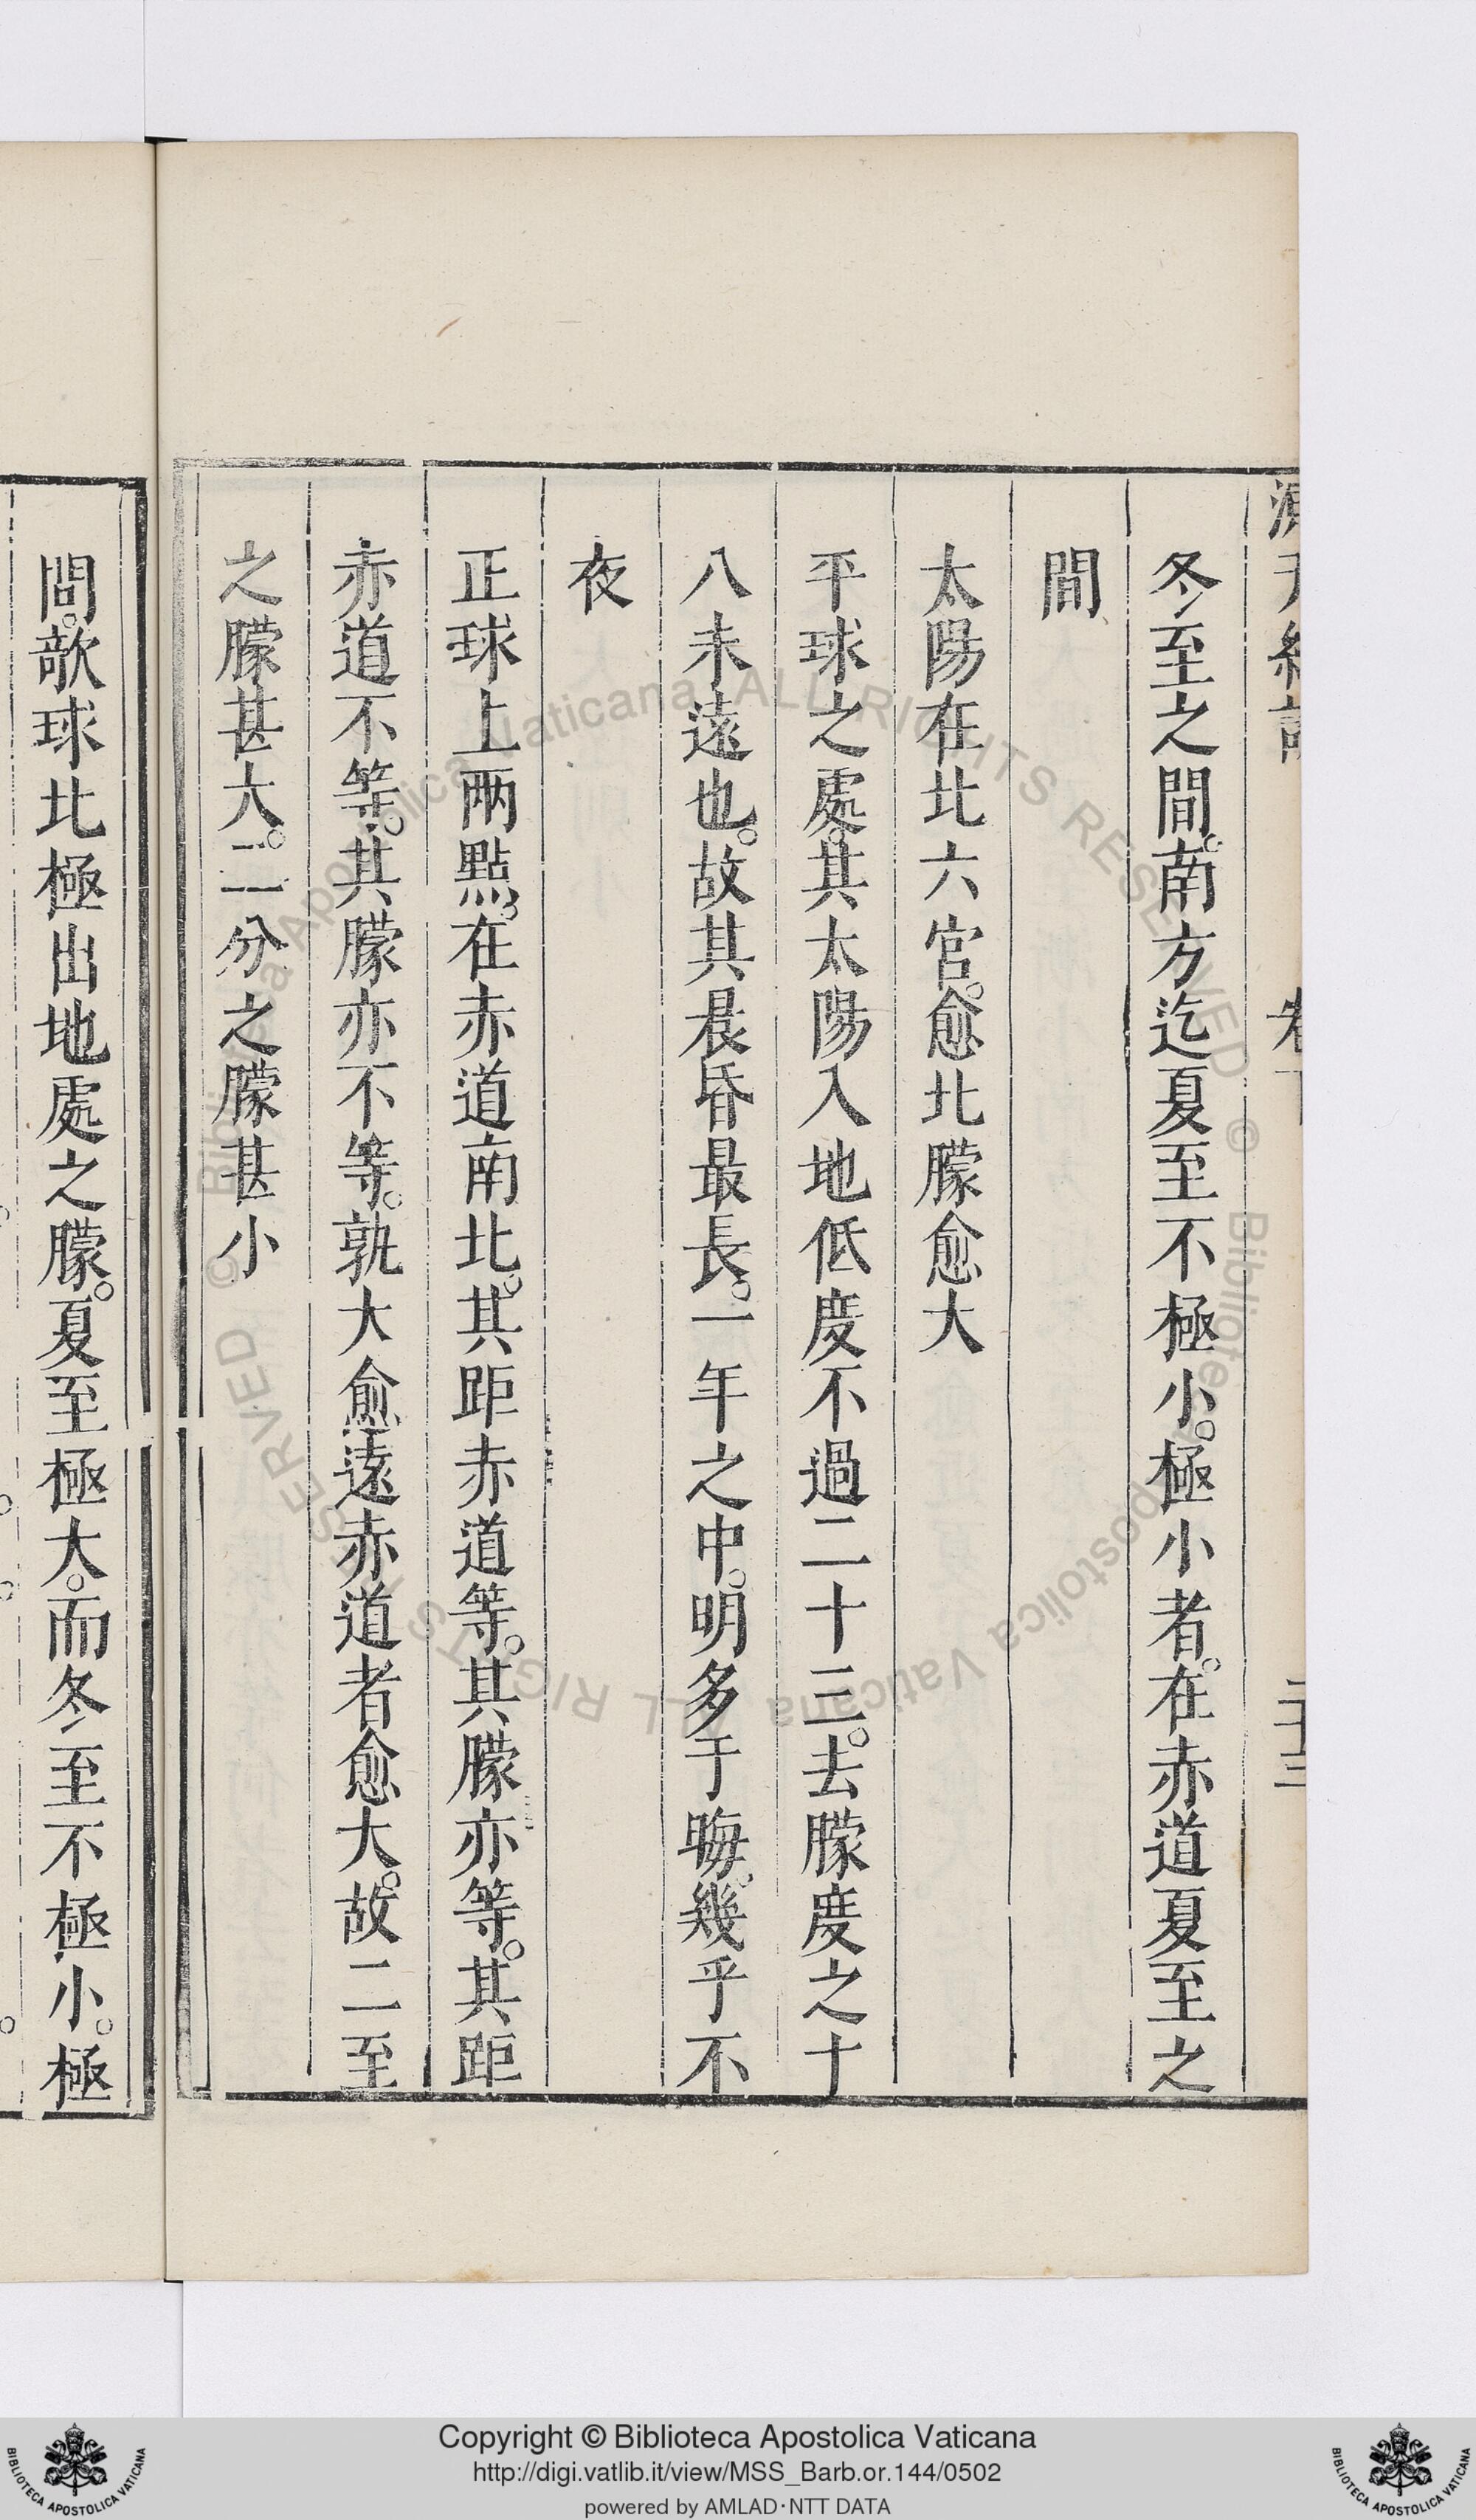 冬至之間。南方迄夏至不極小。極小者。在赤道夏至之
間
太陽在北六宮。愈北朦愈大
平球之處。其太陽入地低度不過二十三。去朦度之十
八未遠也。故其晨昏最長。一年之中。明多于晦。幾乎不
夜
正球上兩點。在赤道南北。其距赤道等。其朦亦等。其距
赤道不等。其朦亦不等。孰大愈遠赤道者愈大。故二至
之朦甚大。二分之朦甚小
間。欹球北極出地處之朦。夏至極大。而冬至不極小。極
Copyright © Biblioteca Apostolica Vaticana
http://digi.vatlib.it/view/MSS_Barb.or.144/0502
powered by AMLAD·NTT DATA
BIBLIOTECA APOSTOLICA VATICANA
BIBLIOTECA APOSTOLICA VATICANA